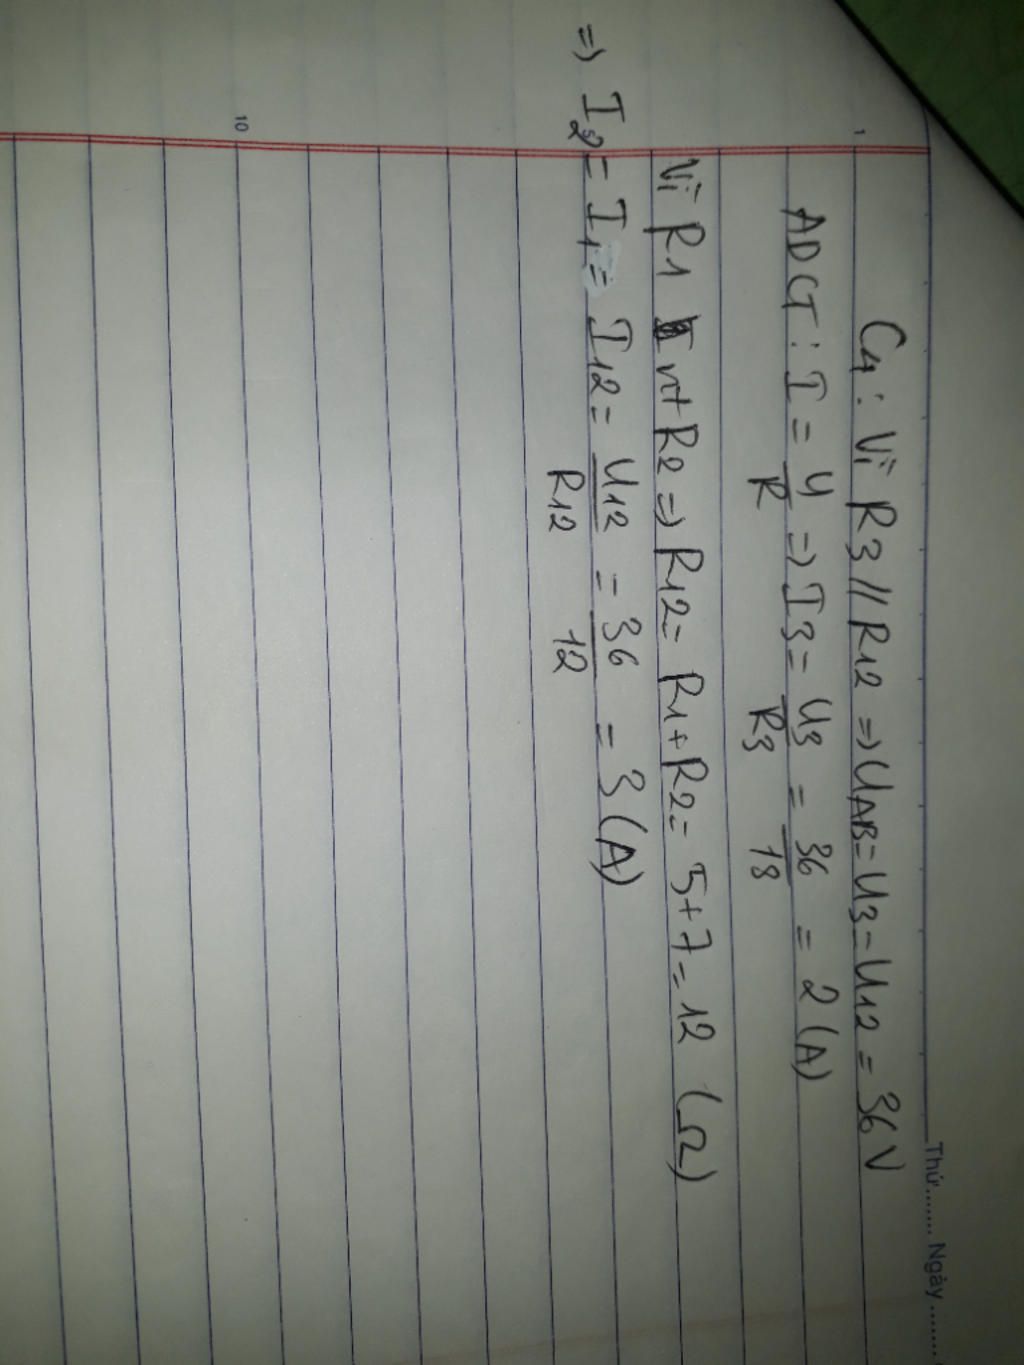 Thứ........ Ngày........
1
C4: Vì R3 // R12 => UAB = U3 = U12 = 36V
ADCT: I = U/R => I3 = U3/R3 = 36/18 = 2 (A)
Vì R1 nt R2 => R12 = R1 + R2 = 5 + 7 = 12 (Ω)
=> I2 = I1 = I12 = U12/R12 = 36/12 = 3 (A)
10